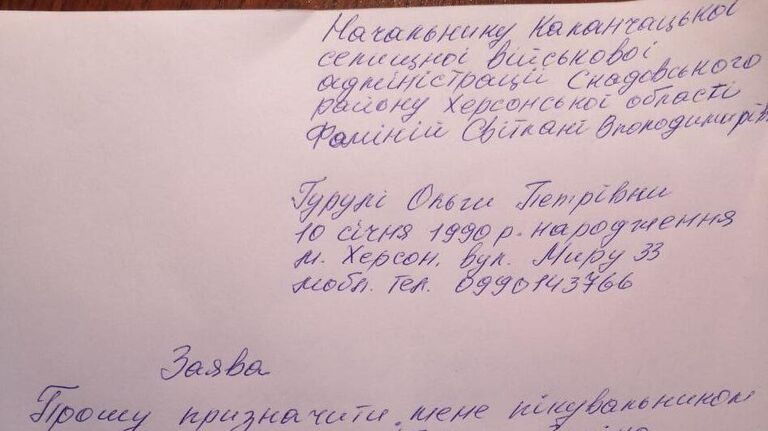 Начальнику Каланчацької
селищної військової
адміністрації Скадовського
району Херсонської області
Фоміній Світлані Володимирів
Гурулі Ольги Петрівни
10 січня 1990 р. народження
м. Херсон, вул. Миру 33
мобл. тел. 0990143766
Заява
Прошу призначити мене піклувальником